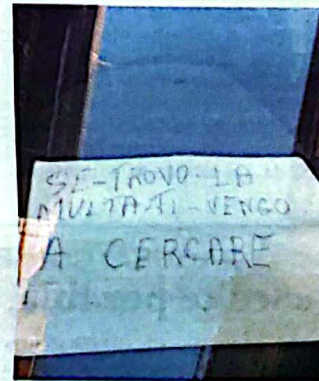 SE-TROVO-LA
MULTA-TI-VENGO
A CERCARE